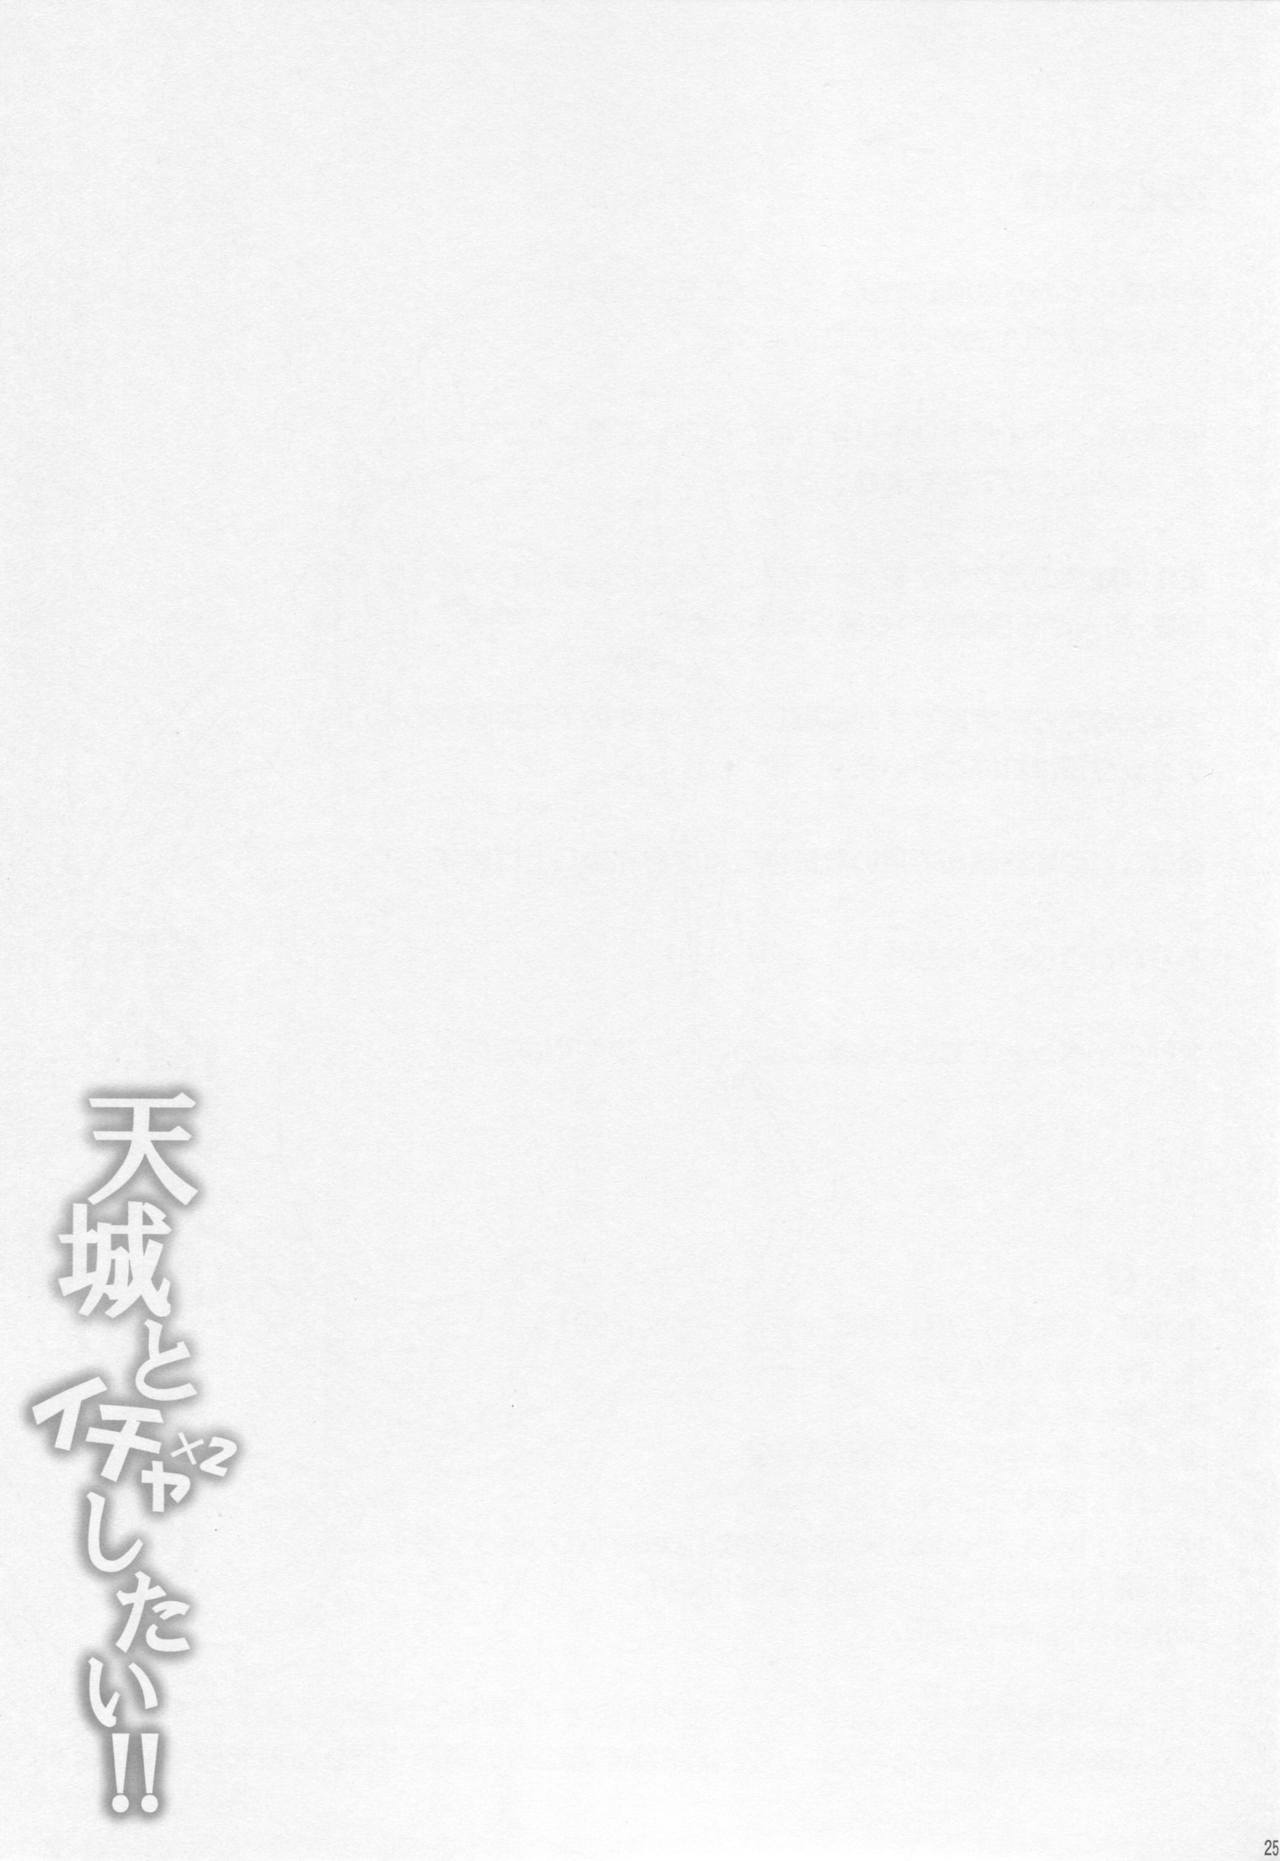 天城とイチャ×2したい!!
25